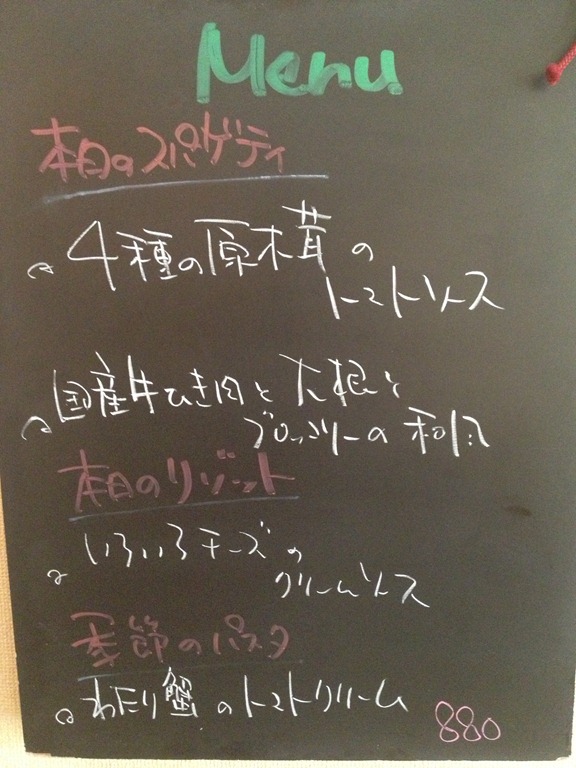 Menu
本日のスパゲティ
4種の原木茸の
トマトソース
国産牛ひき肉と大根と
ブロッコリーの和風
本日のリゾット
いろいろチーズの
クリームソース
季節のパスタ
わたり蟹のトマトクリーム
880